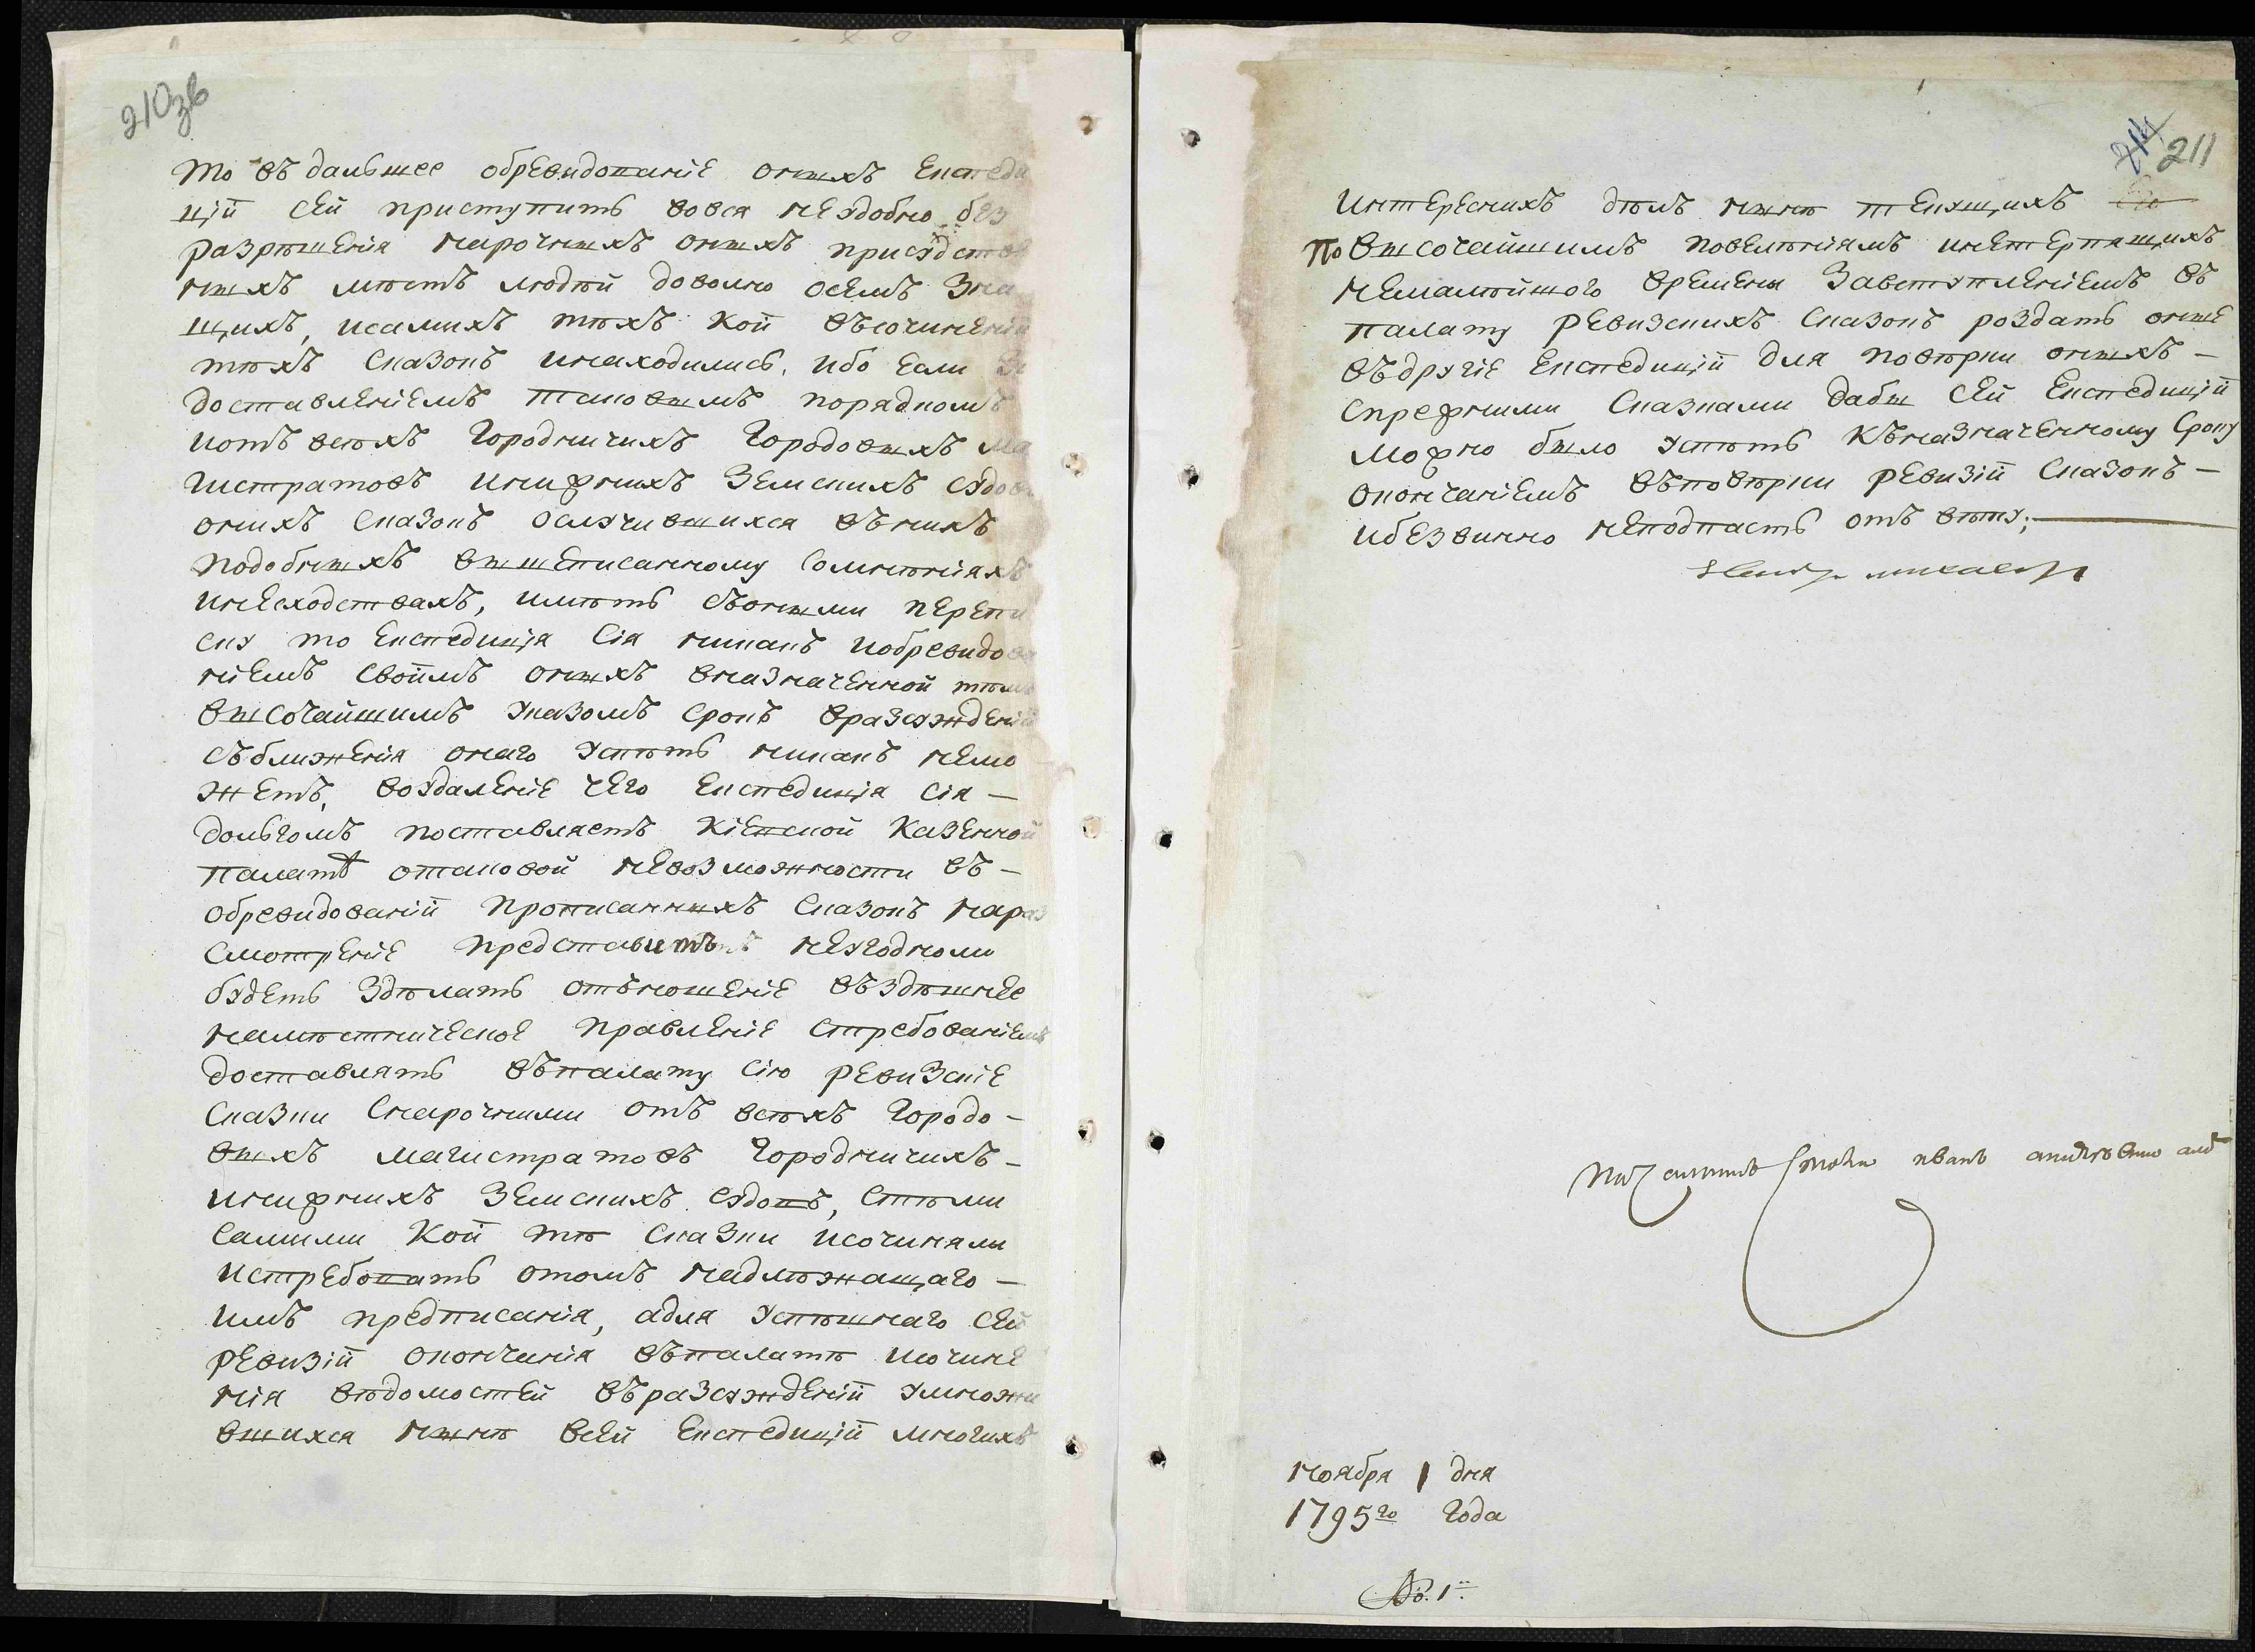 210зв
то въ дальшее обревидованіе онихъ експеди
цій сей приступить вовся неудобно без
разрѣшенія нарочныхъ оныхъ присудстве
нныхъ мѣстъ людѣй доволно осемъ зна
щихъ, исамихъ тѣхъ кой въсочиненій
тѣхъ сказокъ инаходились, ибо если
доставленіемъ таковымъ порядкомъ
иотъ всѣхъ городничихъ городовыхъ ма
гистратовъ инижнихъ земскихъ судов
онихъ сказокъ ослучившихся въ нихъ
подобныхъ вышеписанному сомнѣніяхъ
инесходствахъ, имѣть съоными перепи
ску то експедиція сія никакъ иобревидова
ніемъ своймъ оныхъ вназначенной тѣмъ
высочайшимъ указомъ срокъ вразсужденій
сближенія онаго успѣть никакъ немо
жетъ, воздаленіе чего експедиція сія —
долгомъ поставляетъ кіевской казенной
палатѣ отаковой невозможности въ —
обревидованій прописанныхъ сказокъ нараз
смотреніе представить неугодноли
будеть здѣлать отъношеніе въздѣшнее
намѣстническое правленіе стребованіемъ
доставлять въпалату сію ревизскіе
сказки снарочними отъ всѣхъ городо –
выхъ магистратовъ городничихъ –
инижнихъ земскихъ судовъ, стѣми
самими кой тѣ сказки исочиняли
истребовать отомъ надлѣжащаго —
имъ предписанія, адля успѣшнаго сей
ревизій окончанія въпалатѣ исочине
нія вѣдомостей въразсужденій умножи
вшихся нынѣ всей експедицій многихъ
211
интересникъ дѣлъ нынѣ текущихъ
по высочайшимъ повелѣніямъ инетерпящихъ
немалѣйшого времены завступленіемъ въ
палату ревизскихъ сказокъ роздать оные
въдругіе експедицій для повѣрки оныхъ —
спрежними сказками дабы сей експедицій
можно было успѣть къназначенному сроку
окончаніемъ въповѣрки ревизій сказокъ —
ибезвинно неподпасть отвѣту;
иванъ
ноября 1 дня
1795го года
№. 1.